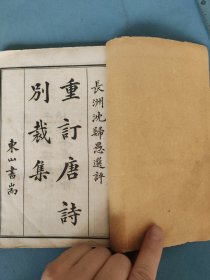 長洲沈歸愚選評
重訂唐詩
別裁集
東山書尚